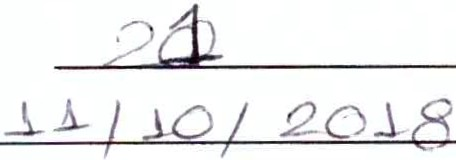 21
11/10/2018